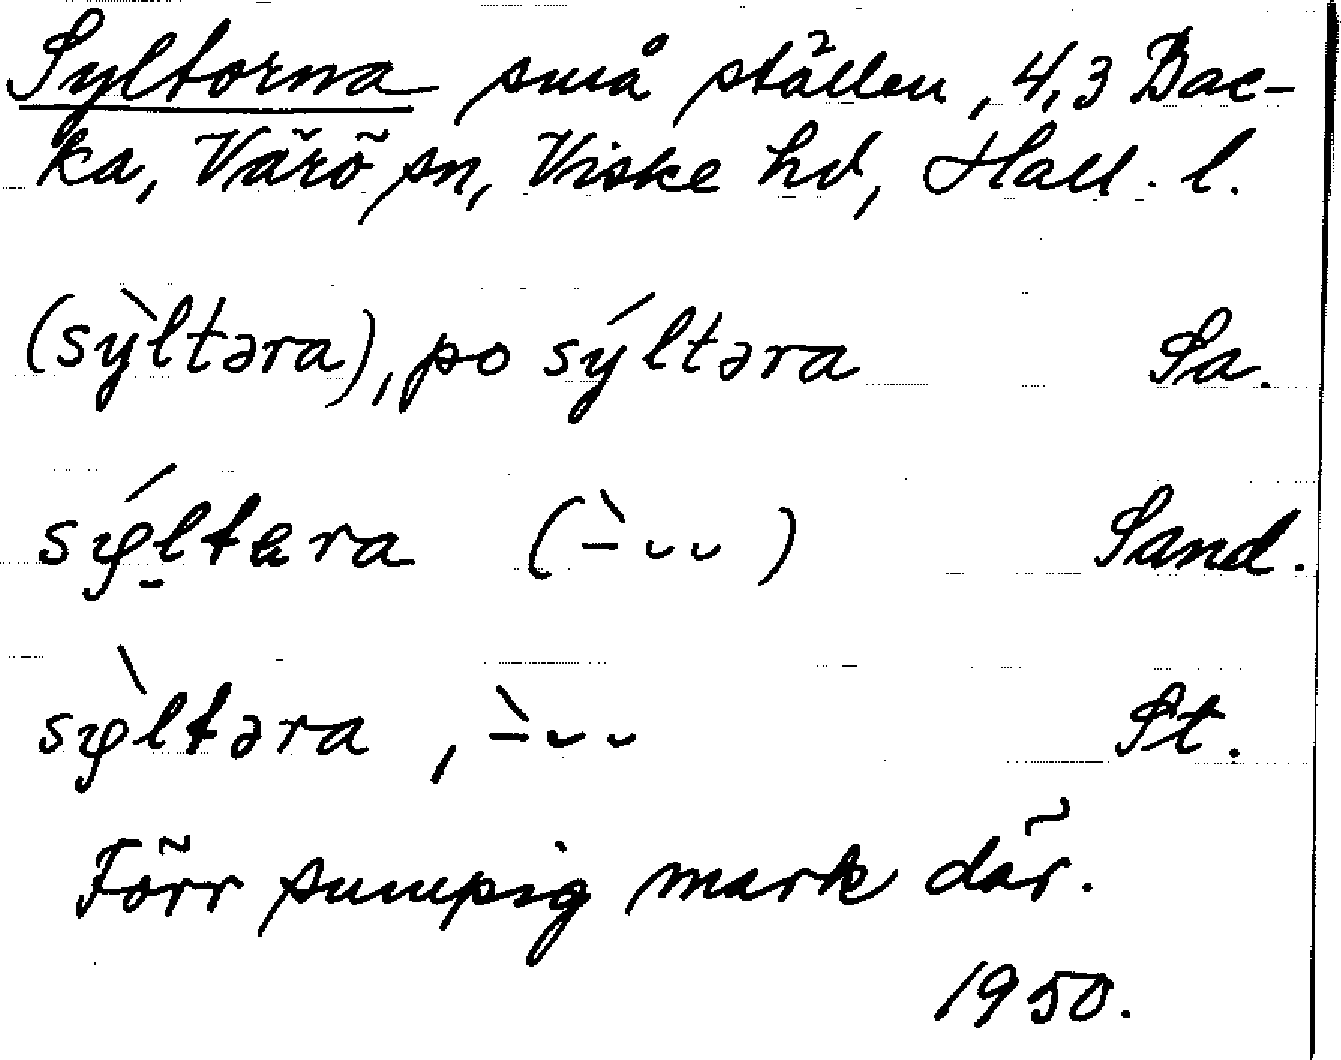 Syltorna små ställen, 4,3 Bac-
ka, Värö sn, Viske hd, Hall. l.
(sỳltəra), po sýltəra Sa.
sýltəra (-̀ ᴗ ᴗ) Sand.
sỳltəra, -̀ ᴗ ᴗ St.
Förr sumpig mark där.
1950.